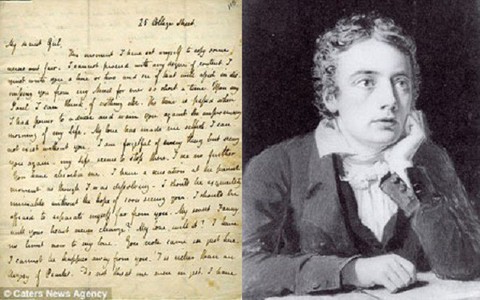 25 College Street
My dearest Girl,
This moment I have set myself to copy some
verses out fair. I cannot proceed with any degree of content. I
must write you a line or two and see if that will assist in dis-
missing you from my Mind for ever so short a time. Upon my
Soul I can think of nothing else. The time is passed when
I had power to advise and warn you against the unpromising
morning of my Life. My love has made me selfish. I can-
not exist without you. I am forgetful of every thing but seeing
you again. my Life seems to stop there. I see no further
You have absorb'd me. I have a sensation at the present
moment as though I was dissolving. I should be exquisitely
miserable without the hope of soon seeing you. I should be
afraid to separate myself far from you. My sweet Fanny
will your heart never change? My love will it? I have
no limit now to my love. Your note came in just here.
I cannot be happier away from you. 'Tis richer than an
Argosy of Pearles. Do not threat me even in jest. I have
© Caters News Agency